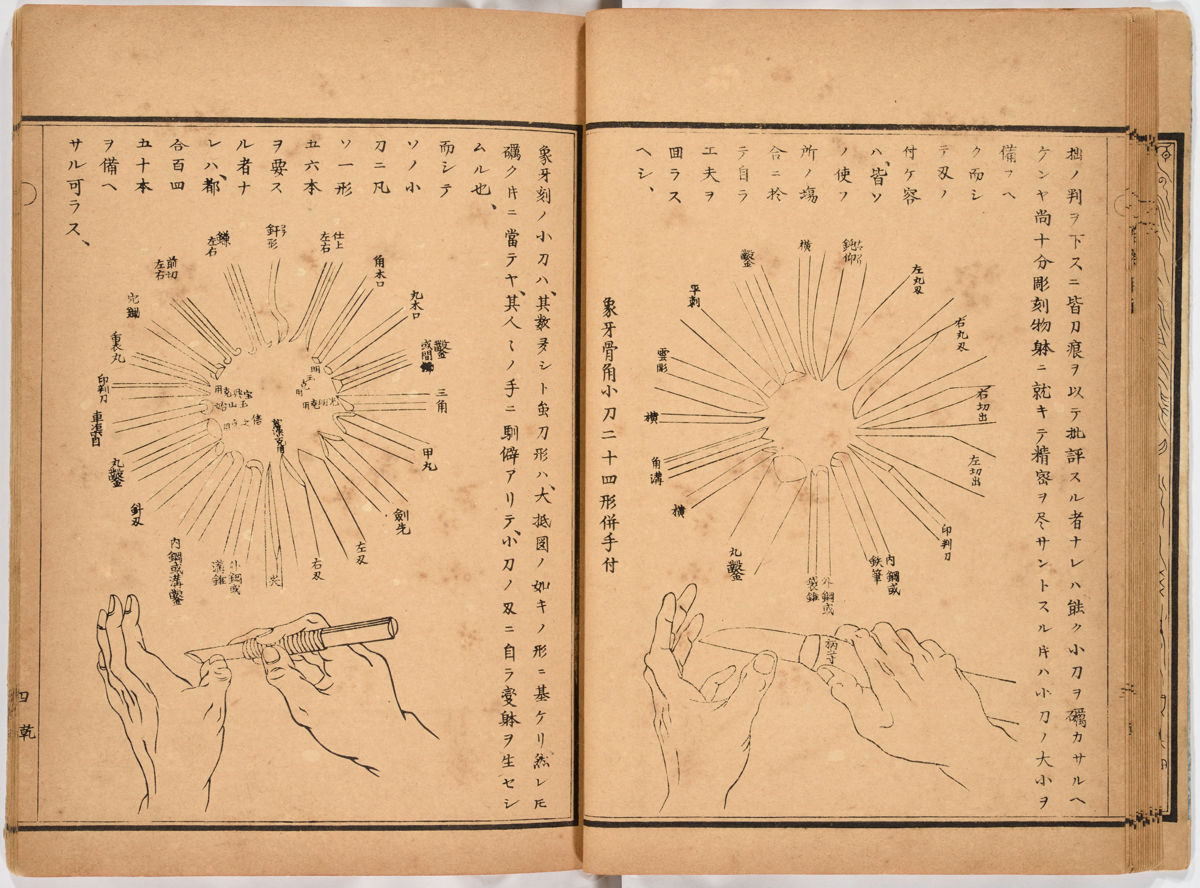 拙ノ判ヲ下スニ皆刀痕ヲ以テ批評スル者ナレハ能ク小刀ヲ礪カサルヘ
ケンヤ尚十分彫刻物躰ニ就キテ精密ヲ尽サントスル𪜈ハ小刀ノ大小ヲ
備フヘ
ク而シ
テ刄ノ
付ケ容
ハ、皆ソ
ノ使フ
所ノ塲
合ニ於
テ自ラ
工夫ヲ
囬ラス
ヘシ、
左丸刄
右丸刄
右切出
左切出
印判刀
内鋼或
鉄筆
外鋼或
丸鑿
横
角溝
横
雲彫
平刺
鑿
横
柄二寸
象牙骨角小刀二十四形併手付
象牙刻ノ小刀ハ、其数多シト虽刀形ハ、大抵図ノ如キノ形ニ基ケリ然レ𪜈
礪ク𪜈ニ當テヤ、其人〻ノ手ニ馴僻アリテ、小刀ノ刄ニ自ラ変躰ヲ生セシ
ムル也、
而シテ
ソノ小
刀ニ凡
ソ一形
五六本
ヲ要ス
ル者ナ
レハ、都
合百四
五十本
ヲ備ヘ
サル可ラス、
仕上
左右
角木口
丸木口
鑿
三角
甲丸
劍先
左刄
右刄
外鋼或
溝錐
内鋼或溝鑿
針刄
丸鑿
印判刀
重表丸
前切
左右
鎌
左右
釬形
四 乾